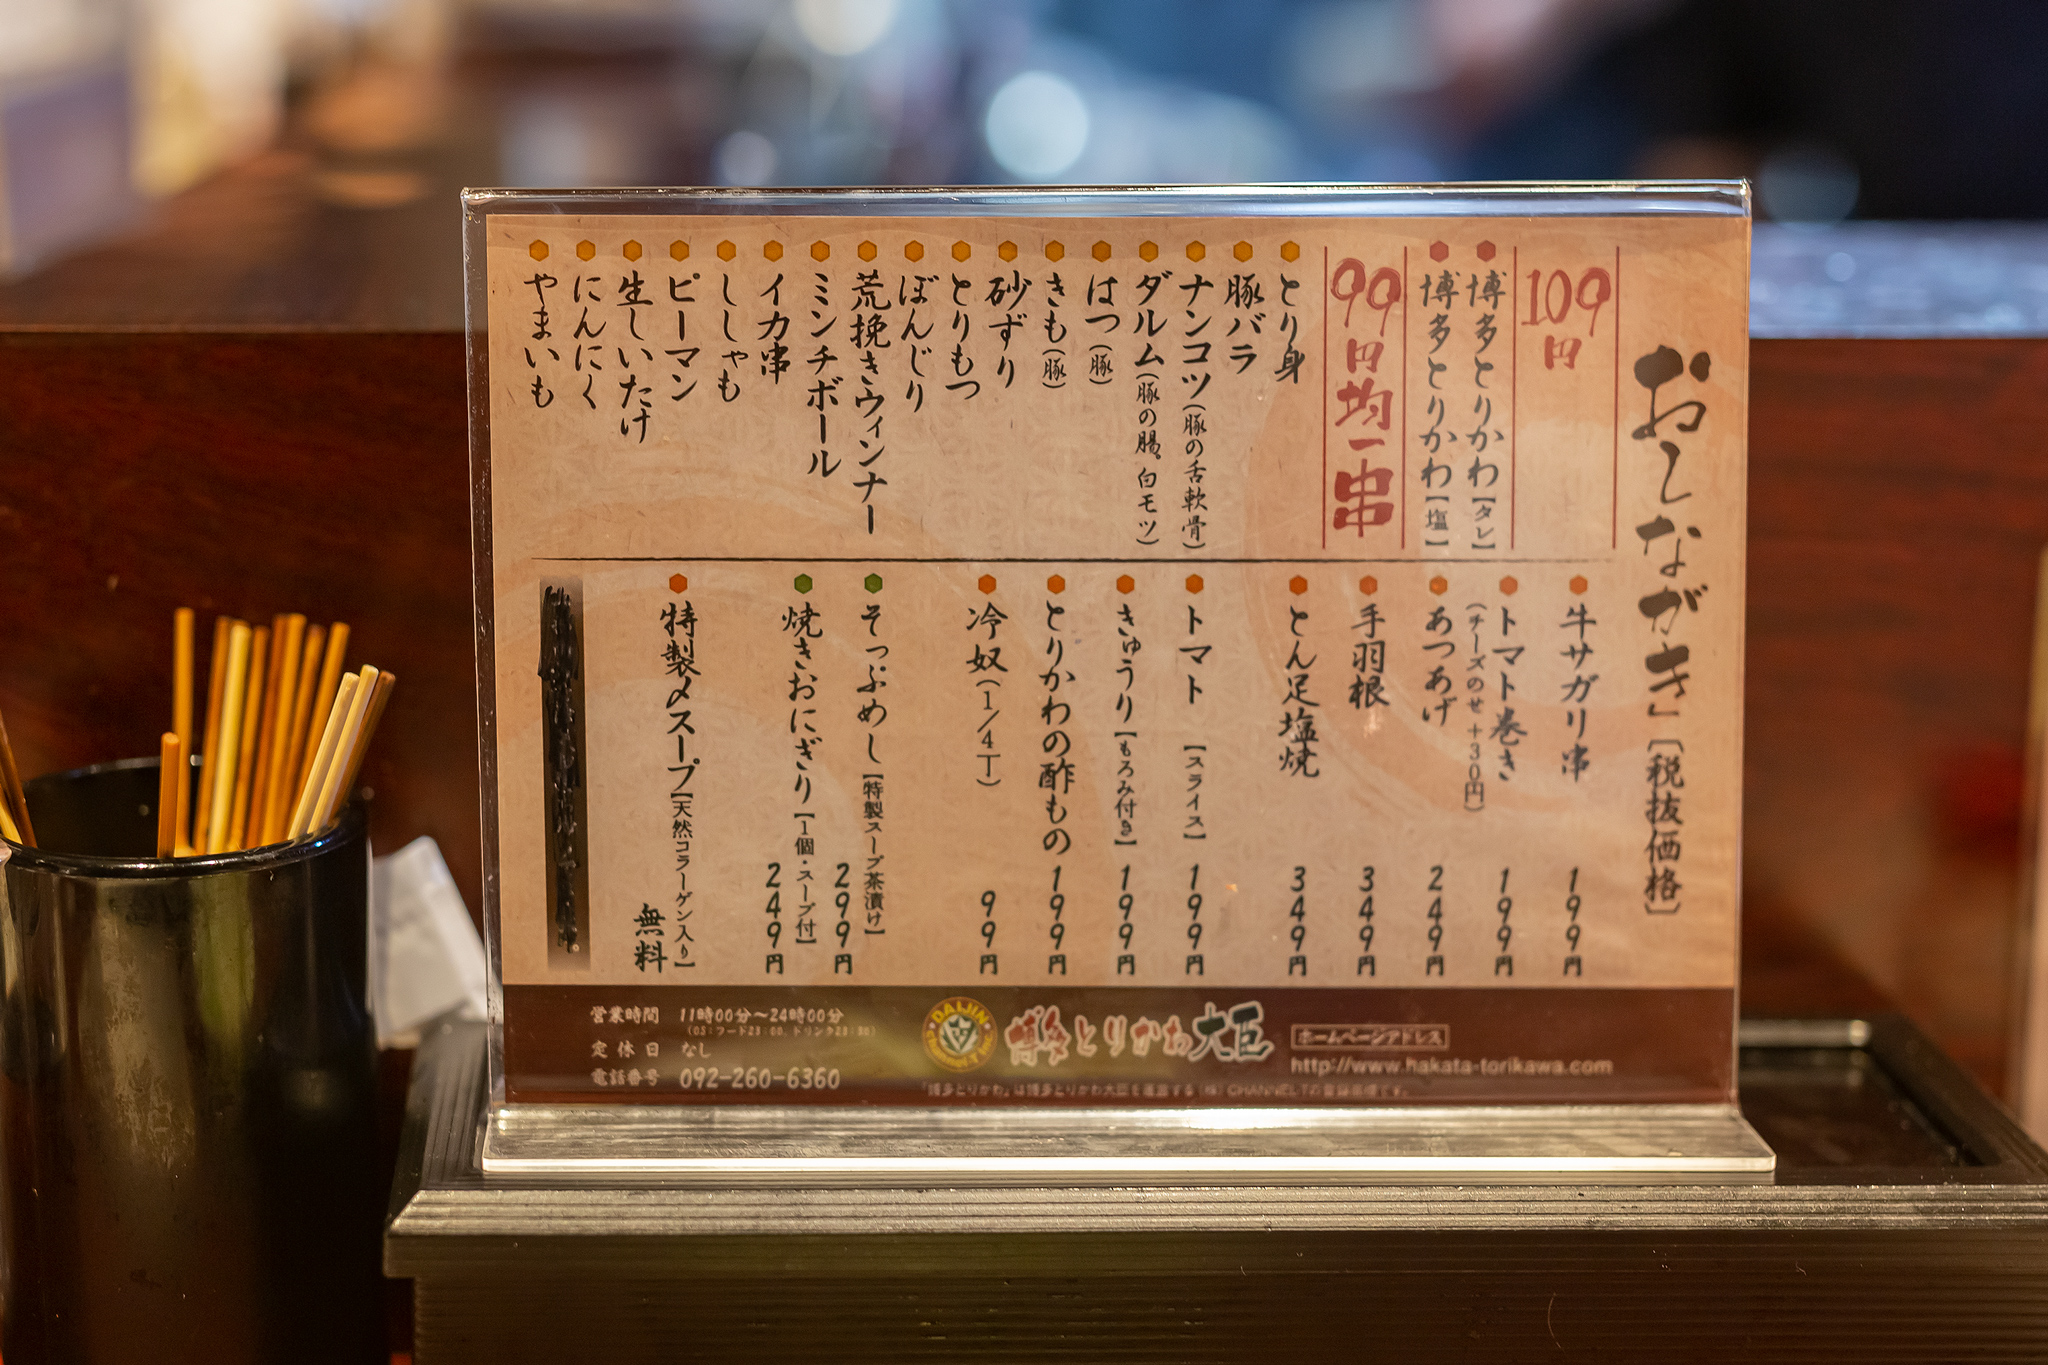 おしながき
【税抜価格】
109円
博多とりかわ【タレ】
博多とりかわ【塩】
99円均一串
とり身
豚バラ
ナンコツ(豚の舌軟骨)
ダルム(豚の腸。白モツ)
はつ(豚)
きも(豚)
砂ずり
とりもつ
ぼんじり
荒挽きウィンナー
ミンチボール
イカ串
ししゃも
ピーマン
生しいたけ
にんにく
やまいも
牛サガリ串 199円
トマト巻き 199円
(チーズのせ +30円)
あつあげ 249円
手羽根 349円
とん足塩焼 349円
トマト 【スライス】 199円
きゅうり【もろみ付き】 199円
とりかわの酢もの 199円
冷奴(1/4丁) 99円
そっぷめし【特製スープ茶漬け】
299円
焼きおにぎり【1個・スープ付】
249円
特製〆スープ【天然コラーゲン入り】
無料
営業時間 11時00分〜24時00分
(OS:フード23:00、ドリンク23:30)
定休日 なし
電話番号 092-260-6360
DAIJIN
CHANNEL-T INC.
博多とりかわ大臣
ホームページアドレス
http://www.hakata-torikawa.com
「博多とりかわ」は博多とりかわ大臣を運営する(株)CHANNELTの登録商標です。